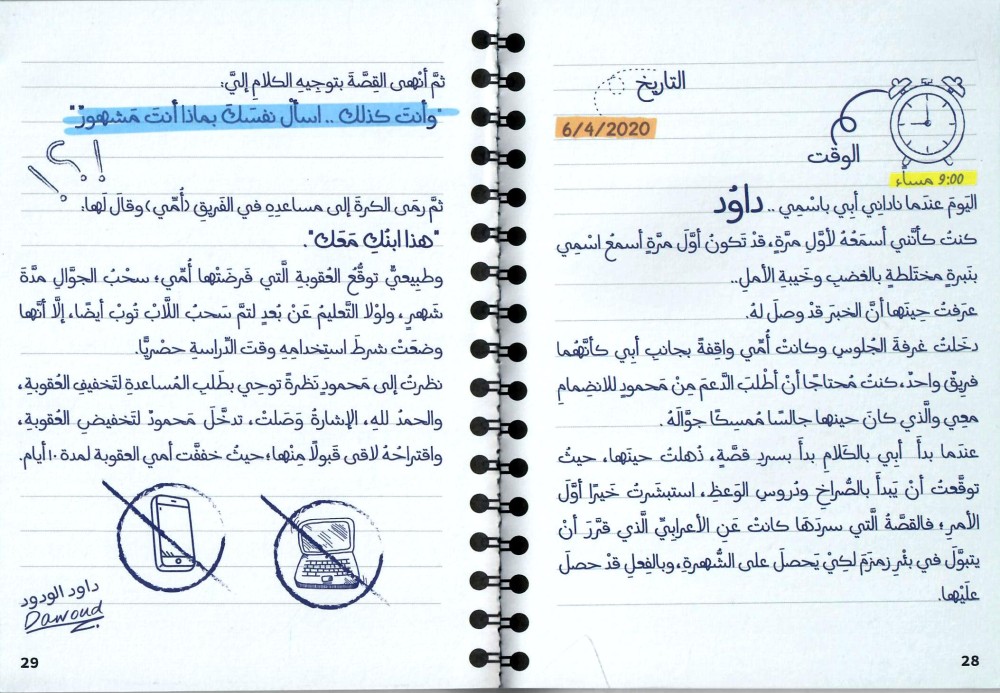 التاريخ
6/4/2020
الوقت
9:00 مساءً
اليَومَ عندَما نادانِي أبي باسْمِي .. داوُد
كنتُ كأنَّني أسمَعُهُ لأوَّلِ مرَّةٍ، قدْ تَكونُ أوَّلَ مرَّةٍ أسمعُ اسْمِي
بنَبرةٍ مختَلطةٍ بالغضبِ وخَيبةِ الأملِ..
عرَفتُ حِينَها أنَّ الخبرَ قدْ وصلَ لهُ.
دخَلتُ غرفةَ الجُلوسِ وكانتْ أُمِّي واقِفةً بجانبِ أبي كأنَّهُما
فريقٌ واحدٌ، كنتُ مُحتاجًا أنْ أطْلبَ الدَّعمَ مِنْ مَحمودٍ للانضِمامِ
معِي والَّذي كانَ حينها جالسًا مُمسِكًا جوَّالَهُ.
عندَما بدأَ أبِي بالكَلامِ بدأَ بسردِ قصَّةٍ، ذُهلتُ حينَها، حيثُ
توقَّعتُ أنْ يَبدأَ بالصُّراخِ ودُروسِ الوَعظِ، استبشَرتُ خَيرًا أوَّلَ
الأمرِ؛ فالقصَّةُ الَّتي سردَهَا كانتْ عَنِ الأعرابيِّ الَّذي قرَّرَ أنْ
يتبوَّلَ في بئْرِ زمزمَ لكِيْ يَحصلَ على الشُّهرةِ، وبالفِعلِ قدْ حصلَ
علَيْها.
28
ثمَّ أنْهى القِصَّةَ بتوجِيهِ الكلامِ إليَّ:
"وأنتَ كذلكَ .. اسألْ نفسَكَ بماذا أنتَ مَشهورٌ"
؟!
ثمَّ رمَى الكرةَ إلى مساعدِهِ في الفَريقِ (أُمِّي) وقالَ لَها:
"هذا ابنُكِ مَعَكِ".
وطبِيعيٌّ توقُّعُ العُقوبةِ الَّتي فَرضَتْها أُمِّي؛ سحْبُ الجوَّالِ مدَّةَ
شَهرٍ، ولوْلا التَّعليمُ عَنْ بُعدٍ لتمَّ سَحبُ اللَّابْ تُوبْ أيضًا، إلَّا أنَّها
وضعَتْ شرطَ استِخدامِهِ وقتَ الدِّراسةِ حصْرِيًّا.
نظرتُ إلى مَحمودٍ نَظرةً توحِي بطَلبِ المُساعدةِ لتَخفِيفِ العُقوبةِ،
والحمدُ للهِ، الإشارةُ وَصَلتْ، تدخَّلَ مَحمودٌ لتَخفيضِ العُقوبةِ،
واقتراحُهُ لاقى قَبولًا مِنْها؛ حيثُ خففَّت أمي العقوبة لمدة ١٠ أيام.
داود الودود
Dawoud
29